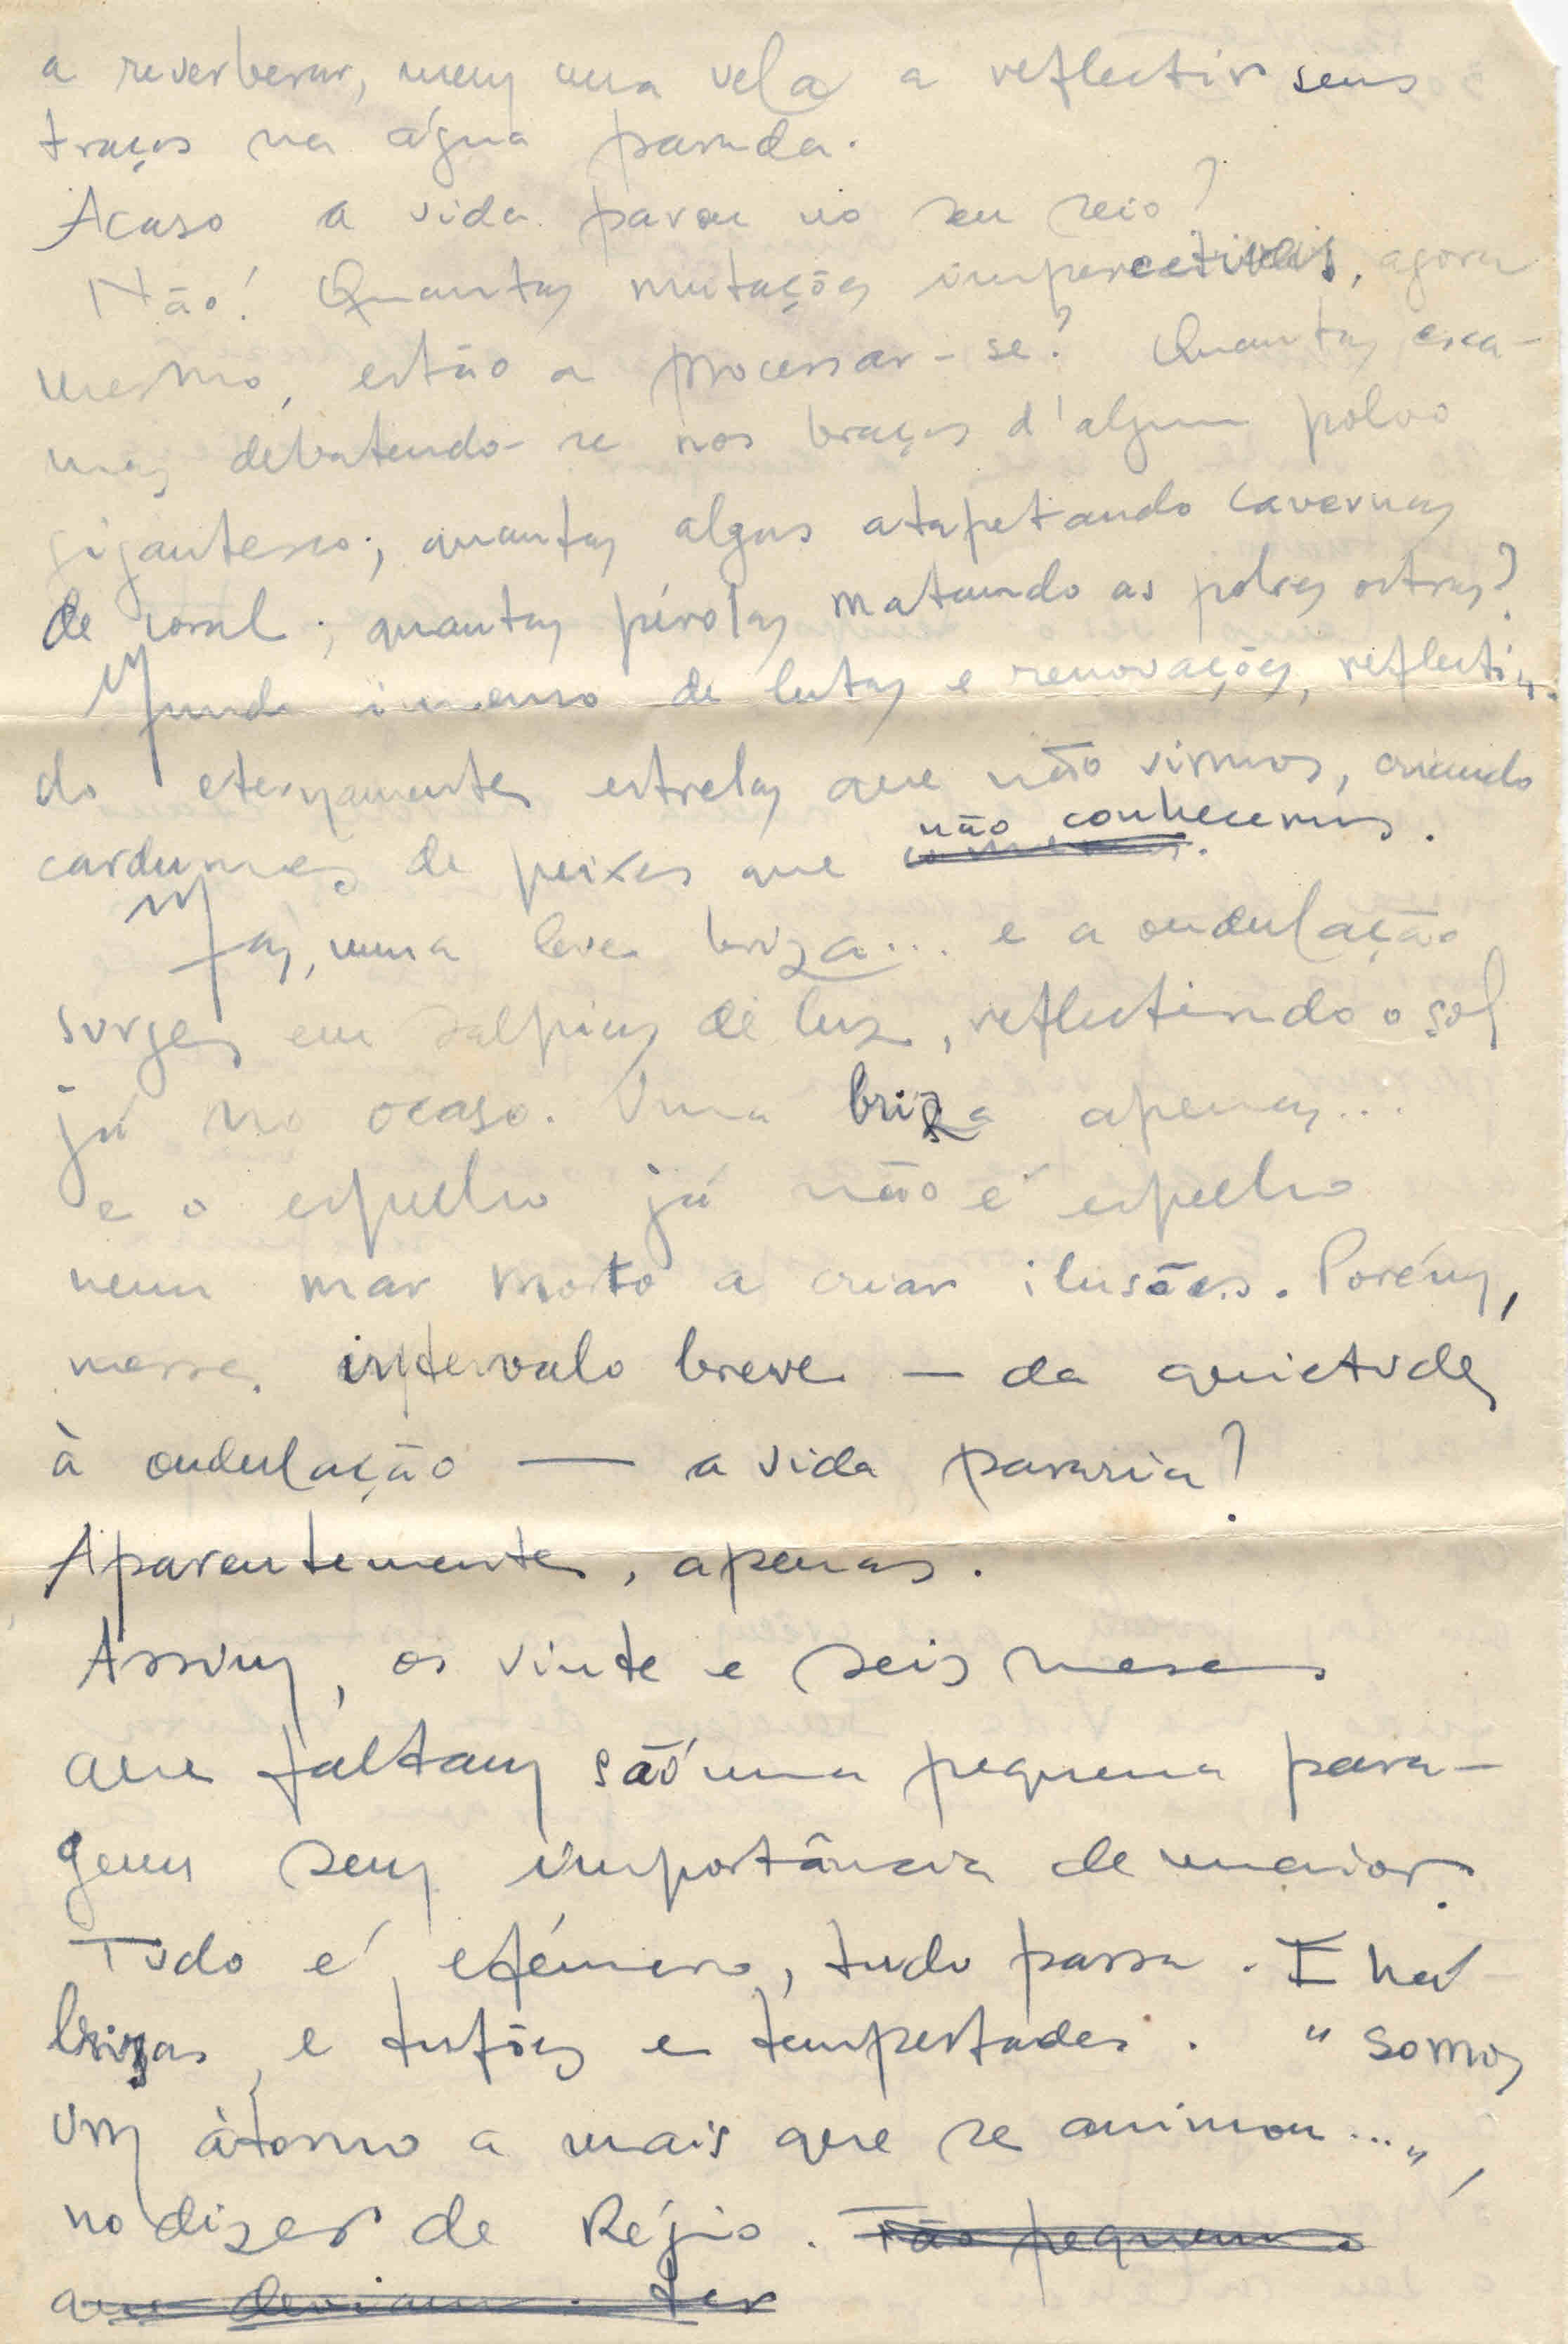 a reverberar, nem uma vela a reflectir seus
traços na água parada.
Acaso a vida parou no seu seio?
Não! Quantas mutações impercetiveis, agora
mesmo, estão a processar-se? Quantas esca-
mas debatendo-se nos braços d'algum polvo
gigantesco; quantas algas atapetando cavernas
de coral; quantas pérolas matando as pobres ostras?
Mundo imenso de lutas e renovações, reflectin-
do eternamente estrelas que não vimos, criando
não conhecemos.
cardumes de peixes que
Mas, uma leve briza... e a ondulação
surge, em salpicos de luz, reflectindo o sol
já no ocaso. Uma briza apenas...
e o espelho já não é espelho
nem mar morto a criar ilusões. Porém,
nesse intervalo breve — da quietude
à ondulação — a vida pararia?
Aparentemente, apenas.
Assim, os vinte e seis meses
que faltam são uma pequena para-
gem sem importância de maior.
Tudo é efémero, tudo passa. E há
brizas, e tufões e tempestades. "Somos
um àtomo a mais que se animou...",
no dizer de Régio. Tão pequeno
que deviam ter